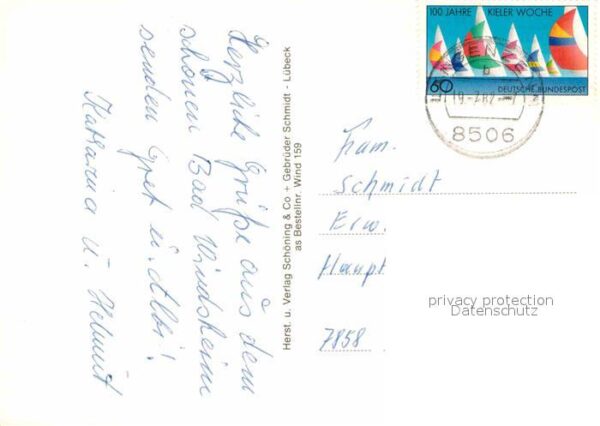 Herzliche Grüße aus dem
schönen Bad Windsheim
senden Gret u.
Katharina u. Helmut
Herst. u. Verlag Schöning & Co + Gebrüder Schmidt - Lübeck
as Bestellnr. Wind 159
100 JAHRE KIELER WOCHE
60 DEUTSCHE BUNDESPOST
8506
Fam.
Schmidt
Erw.
Haupt
7858
privacy protection
Datenschutz